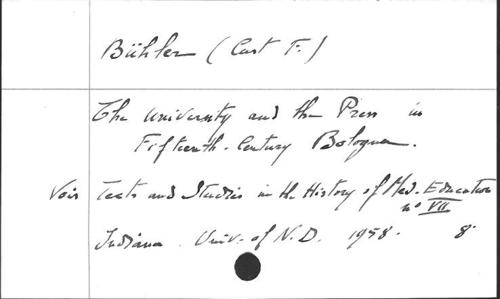 Bühler (Curt F.)
The University and the Press in
Fifteenth-Century Bologna.
Voir Texts and Studies in the History of Med. Education
nº VII
Indiana. Univ. of N.D. 1958. 8º